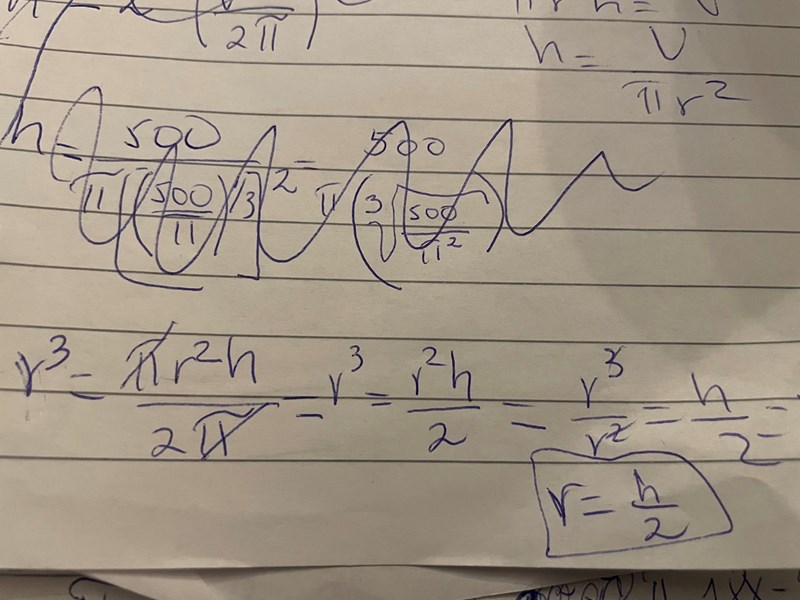 2π
h = V
πr²
h = 500 = 500
π[(500/π)^1/3]² π(³√500/π²)
r³ = πr²h/2π = r³ = r²h/2 = r³/r² = h/2 =
r = h/2